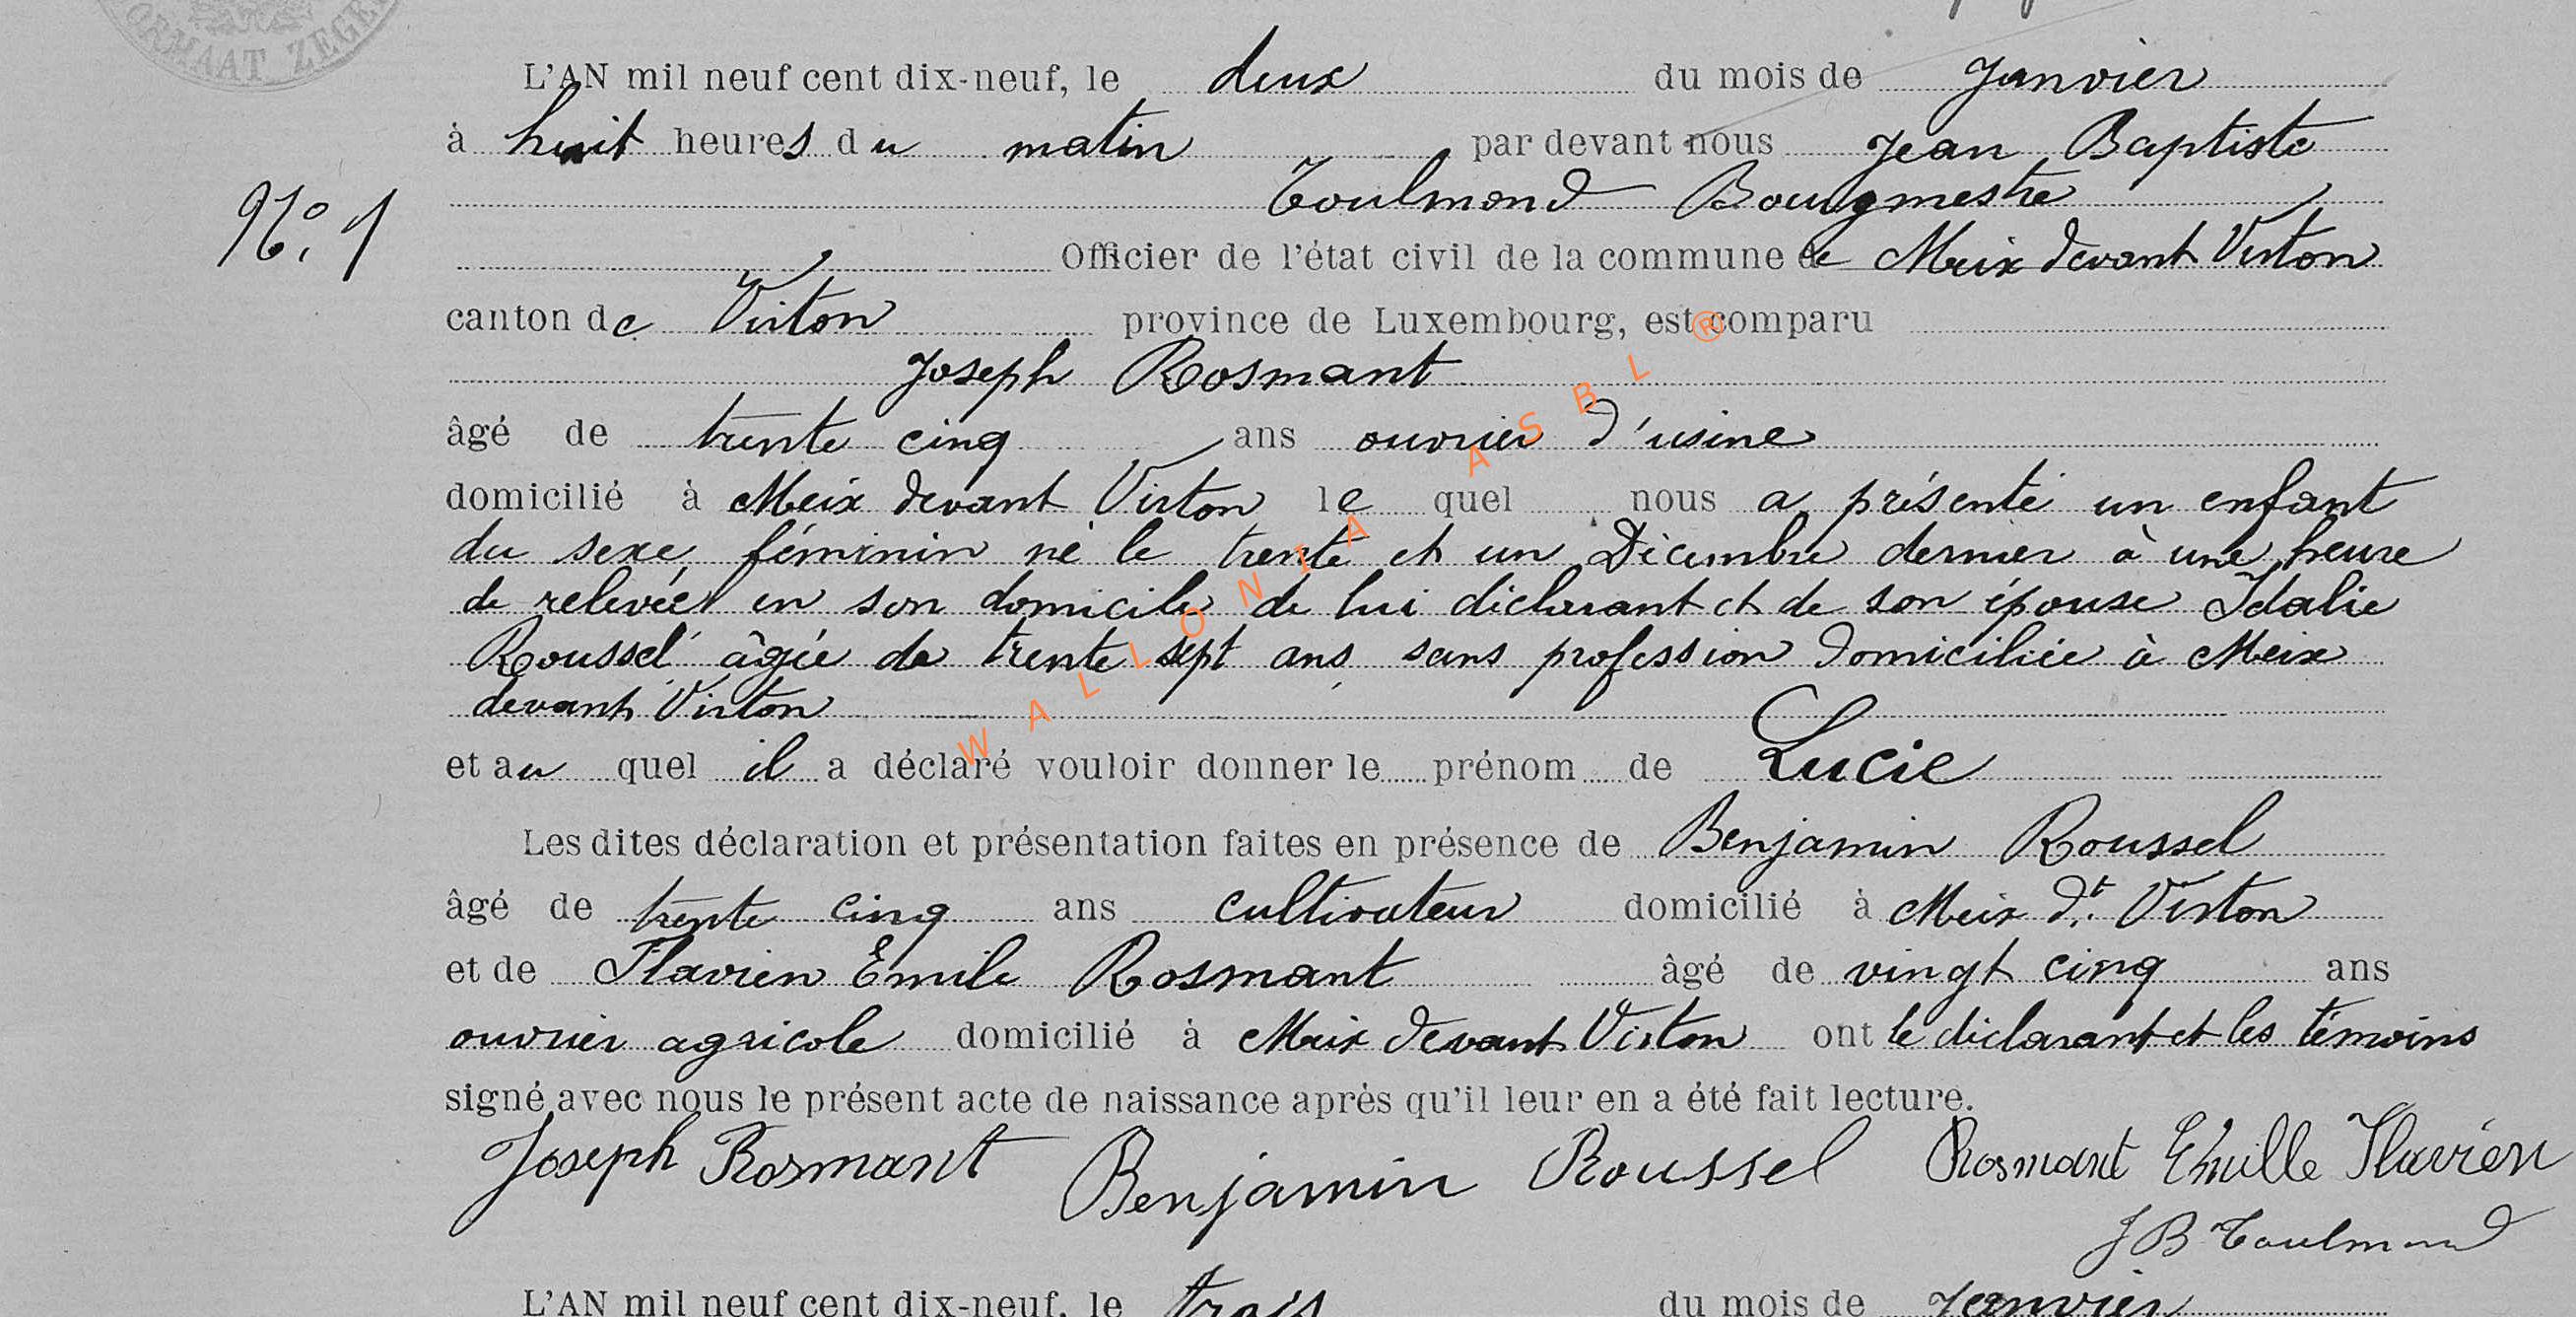 ORMAAT ZEGE
L'AN mil neuf cent dix-neuf, le deux du mois de Janvier
à huit heures du matin par devant nous Jean Baptiste
Toulmond Bourgmestre
N° 1
Officier de l'état civil de la commune de Meix devant Virton
canton de Virton province de Luxembourg, est comparu
Joseph Rosmant
âgé de trente cinq ans ouvrier d'usine
domicilié à Meix devant Virton le quel nous a présenté un enfant
du sexe féminin né le trente et un Décembre dernier à une heure
de relevée en son domicile de lui déclarant et de son épouse Idalie
Roussel âgée de trente sept ans sans profession domiciliée à Meix
devant Virton
et au quel il a déclaré vouloir donner le prénom de Lucie
Les dites déclaration et présentation faites en présence de Benjamin Roussel
âgé de trente cinq ans cultivateur domicilié à Meix dt. Virton
et de Flavien Emile Rosmant âgé de vingt cinq ans
ouvrier agricole domicilié à Meix devant Virton ont le déclarant et les témoins
signé avec nous le présent acte de naissance après qu'il leur en a été fait lecture.
Joseph Rosmant Benjamin Roussel Rosmant Emille Flavien
JB Toulmond
L'AN mil neuf cent dix-neuf, le trois du mois de Janvier
WALLONIA ASBL ®